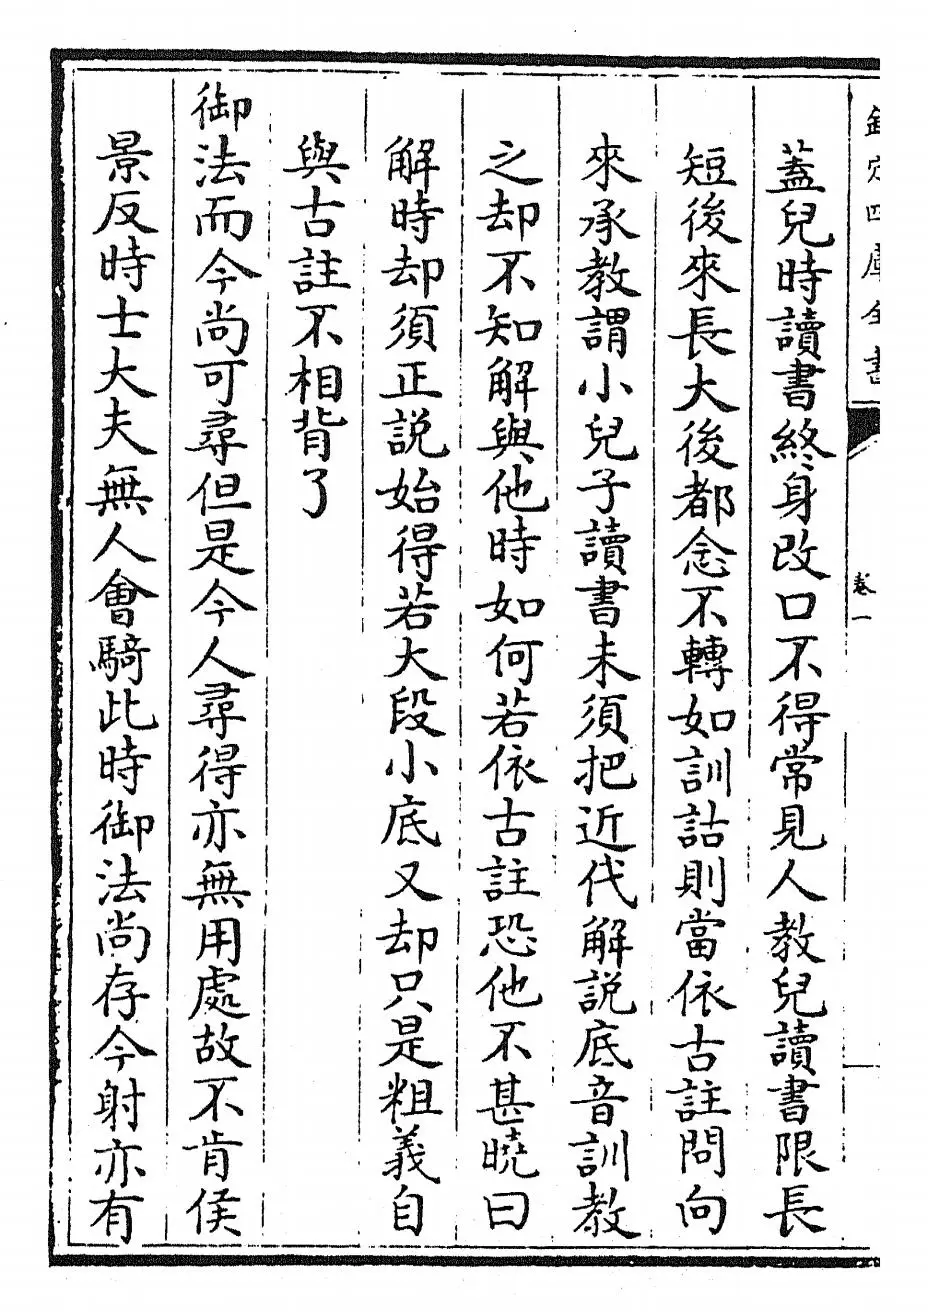 欽定四庫全書
卷一
蓋兒時讀書終身改口不得常見人教兒讀書限長
短後來長大後都念不轉如訓詁則當依古註問向
來承教謂小兒子讀書未須把近代解說底音訓教
之却不知解與他時如何若依古註恐他不甚曉曰
解時却須正說始得若大段小底又却只是粗義自
與古註不相背了
御法而今尚可尋但是今人尋得亦無用處故不肯侯
景反時士大夫無人會騎此時御法尚存今射亦有